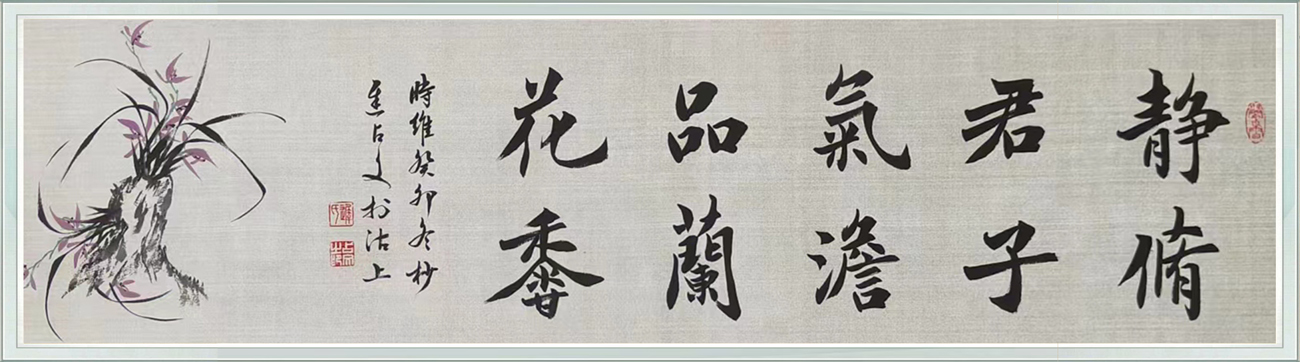 静脩
君子
氣澹
品蘭
花香
時維癸卯冬杪
焦占文於沽上